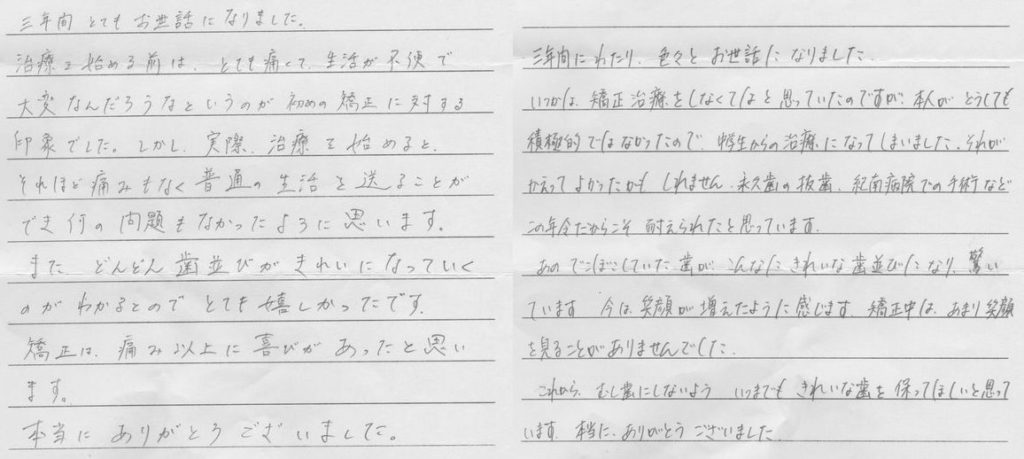 三年間 とても お世話になりました。
治療を始める前は、とても痛くて、生活が不便で
大変なんだろうなというのが初めの矯正に対する
印象でした。しかし、実際、治療を始めると、
それほど痛みもなく普通の生活を送ることが
でき何の問題もなかったように思います。
また どんどん歯並びがきれいになっていく
のがわかるとのでとても嬉しかったです。
矯正は、痛み以上に喜びがあったと思い
ます。
本当に ありがとう ございました。
三年間にわたり、色々とお世話になりました。
いつかは、矯正治療をしなくてはと思っていたのですが、本人がどうしても
積極的ではなかったので、中学生からの治療になってしまいました。それが
かえってよかったかもしれません。永久歯の抜歯、紀南病院での手術など
この年令だからこそ耐えられたと思っています。
あのでこぼこしていた歯が、こんなにきれいな歯並びになり、驚い
ています 今は、笑顔が増えたように感じます。矯正中は、あまり笑顔
を見ることがありませんでした。
これから、むし歯にしないよう いつまでも きれいな歯を保ってほしいと思って
います。本当に、ありがとう ございました。